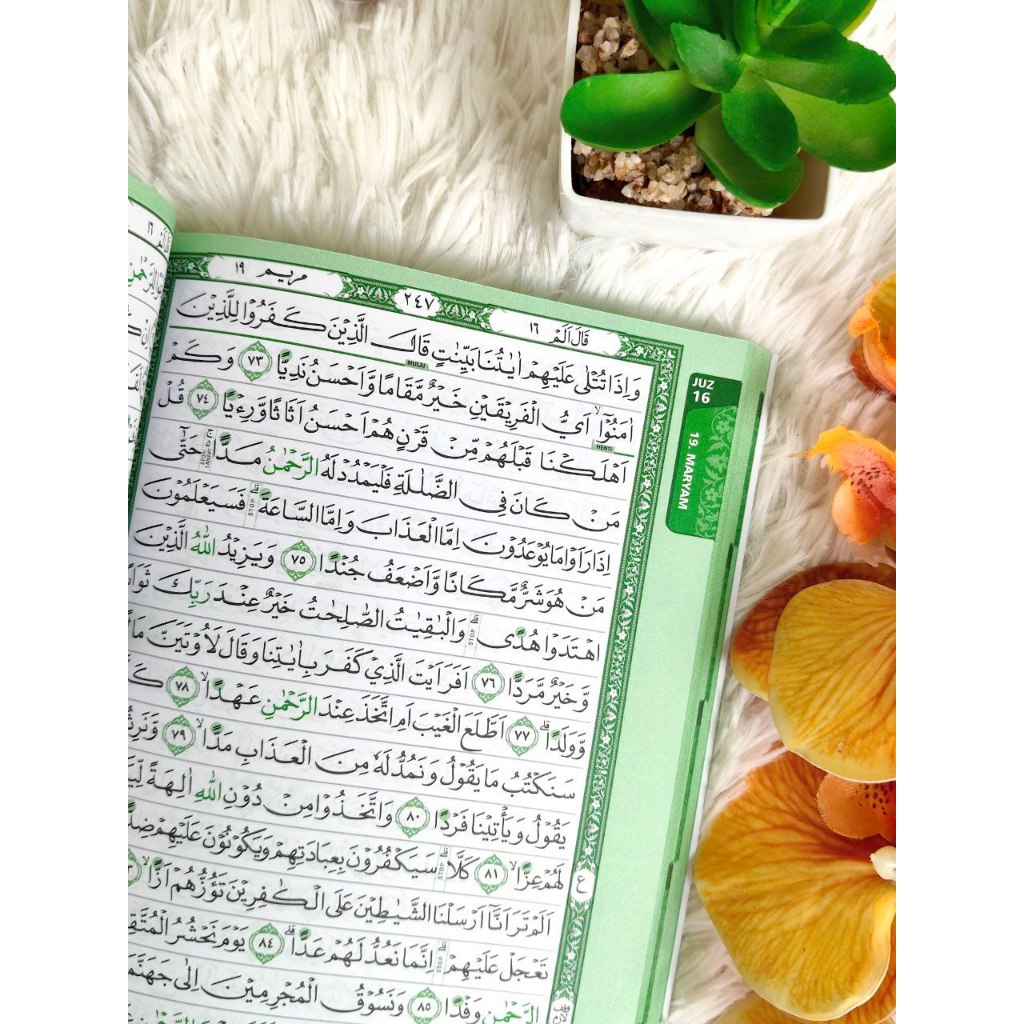 مريم ١٩
٢٤٧
قال الم ١٦
وَاِذَا تُتْلٰى عَلَيْهِمْ اٰيٰتُنَا بَيِّنٰتٍ قَالَ الَّذِيْنَ كَفَرُوْا لِلَّذِيْنَ
MULAI
اٰمَنُوْٓاۙ اَيُّ الْفَرِيْقَيْنِ خَيْرٌ مَّقَامًا وَّاَحْسَنُ نَدِيًّا ٧٣ وَكَمْ
HENTI
اَهْلَكْنَا قَبْلَهُمْ مِّنْ قَرْنٍ هُمْ اَحْسَنُ اَثَاثًا وَّرِءْيًا ٧٤ قُلْ
مَنْ كَانَ فِى الضَّلٰلَةِ فَلْيَمْدُدْ لَهُ الرَّحْمٰنُ مَدًّا حَتّٰٓى
اِذَا رَاَوْا مَا يُوْعَدُوْنَ اِمَّا الْعَذَابَ وَاِمَّا السَّاعَةَ STOP فَسَيَعْلَمُوْنَ
مَنْ هُوَ شَرٌّ مَّكَانًا وَّاَضْعَفُ جُنْدًا ٧٥ وَيَزِيْدُ اللّٰهُ الَّذِيْنَ
اهْتَدَوْا هُدًى STOP وَالْبٰقِيٰتُ الصّٰلِحٰتُ خَيْرٌ عِنْدَ رَبِّكَ
وَّخَيْرٌ مَّرَدًّا ٧٦ اَفَرَاَيْتَ الَّذِيْ كَفَرَ بِاٰيٰتِنَا وَقَالَ لَاُوْتَيَنَّ
وَّوَلَدًاۗ ٧٧ اَطَّلَعَ الْغَيْبَ اَمِ اتَّخَذَ عِنْدَ الرَّحْمٰنِ عَهْدًاۙ ٧٨
سَنَكْتُبُ مَا يَقُوْلُ وَنَمُدُّ لَهٗ مِنَ الْعَذَابِ مَدًّاۙ ٧٩
يَقُوْلُ وَيَأْتِيْنَا فَرْدًا ٨٠ وَاتَّخَذُوْا مِنْ دُوْنِ اللّٰهِ اٰلِهَةً
لَهُمْ عِزًّاۙ ٨١ كَلَّا STOP سَيَكْفُرُوْنَ بِعِبَادَتِهِمْ وَيَكُوْنُوْنَ عَلَيْهِمْ
ع
اَلَمْ تَرَ اَنَّآ اَرْسَلْنَا الشَّيٰطِيْنَ عَلَى الْكٰفِرِيْنَ تَؤُزُّهُمْ اَزًّاۙ
تَعْجَلْ عَلَيْهِمْ STOP اِنَّمَا نَعُدُّ لَهُمْ عَدًّاۗ ٨٤ يَوْمَ نَحْشُرُ
الرَّحْمٰنِ وَفْدًا ٨٥ وَنَسُوْقُ الْمُجْرِمِيْنَ اِلٰى جَهَنَّمَ
JUZ
16
19. MARYAM